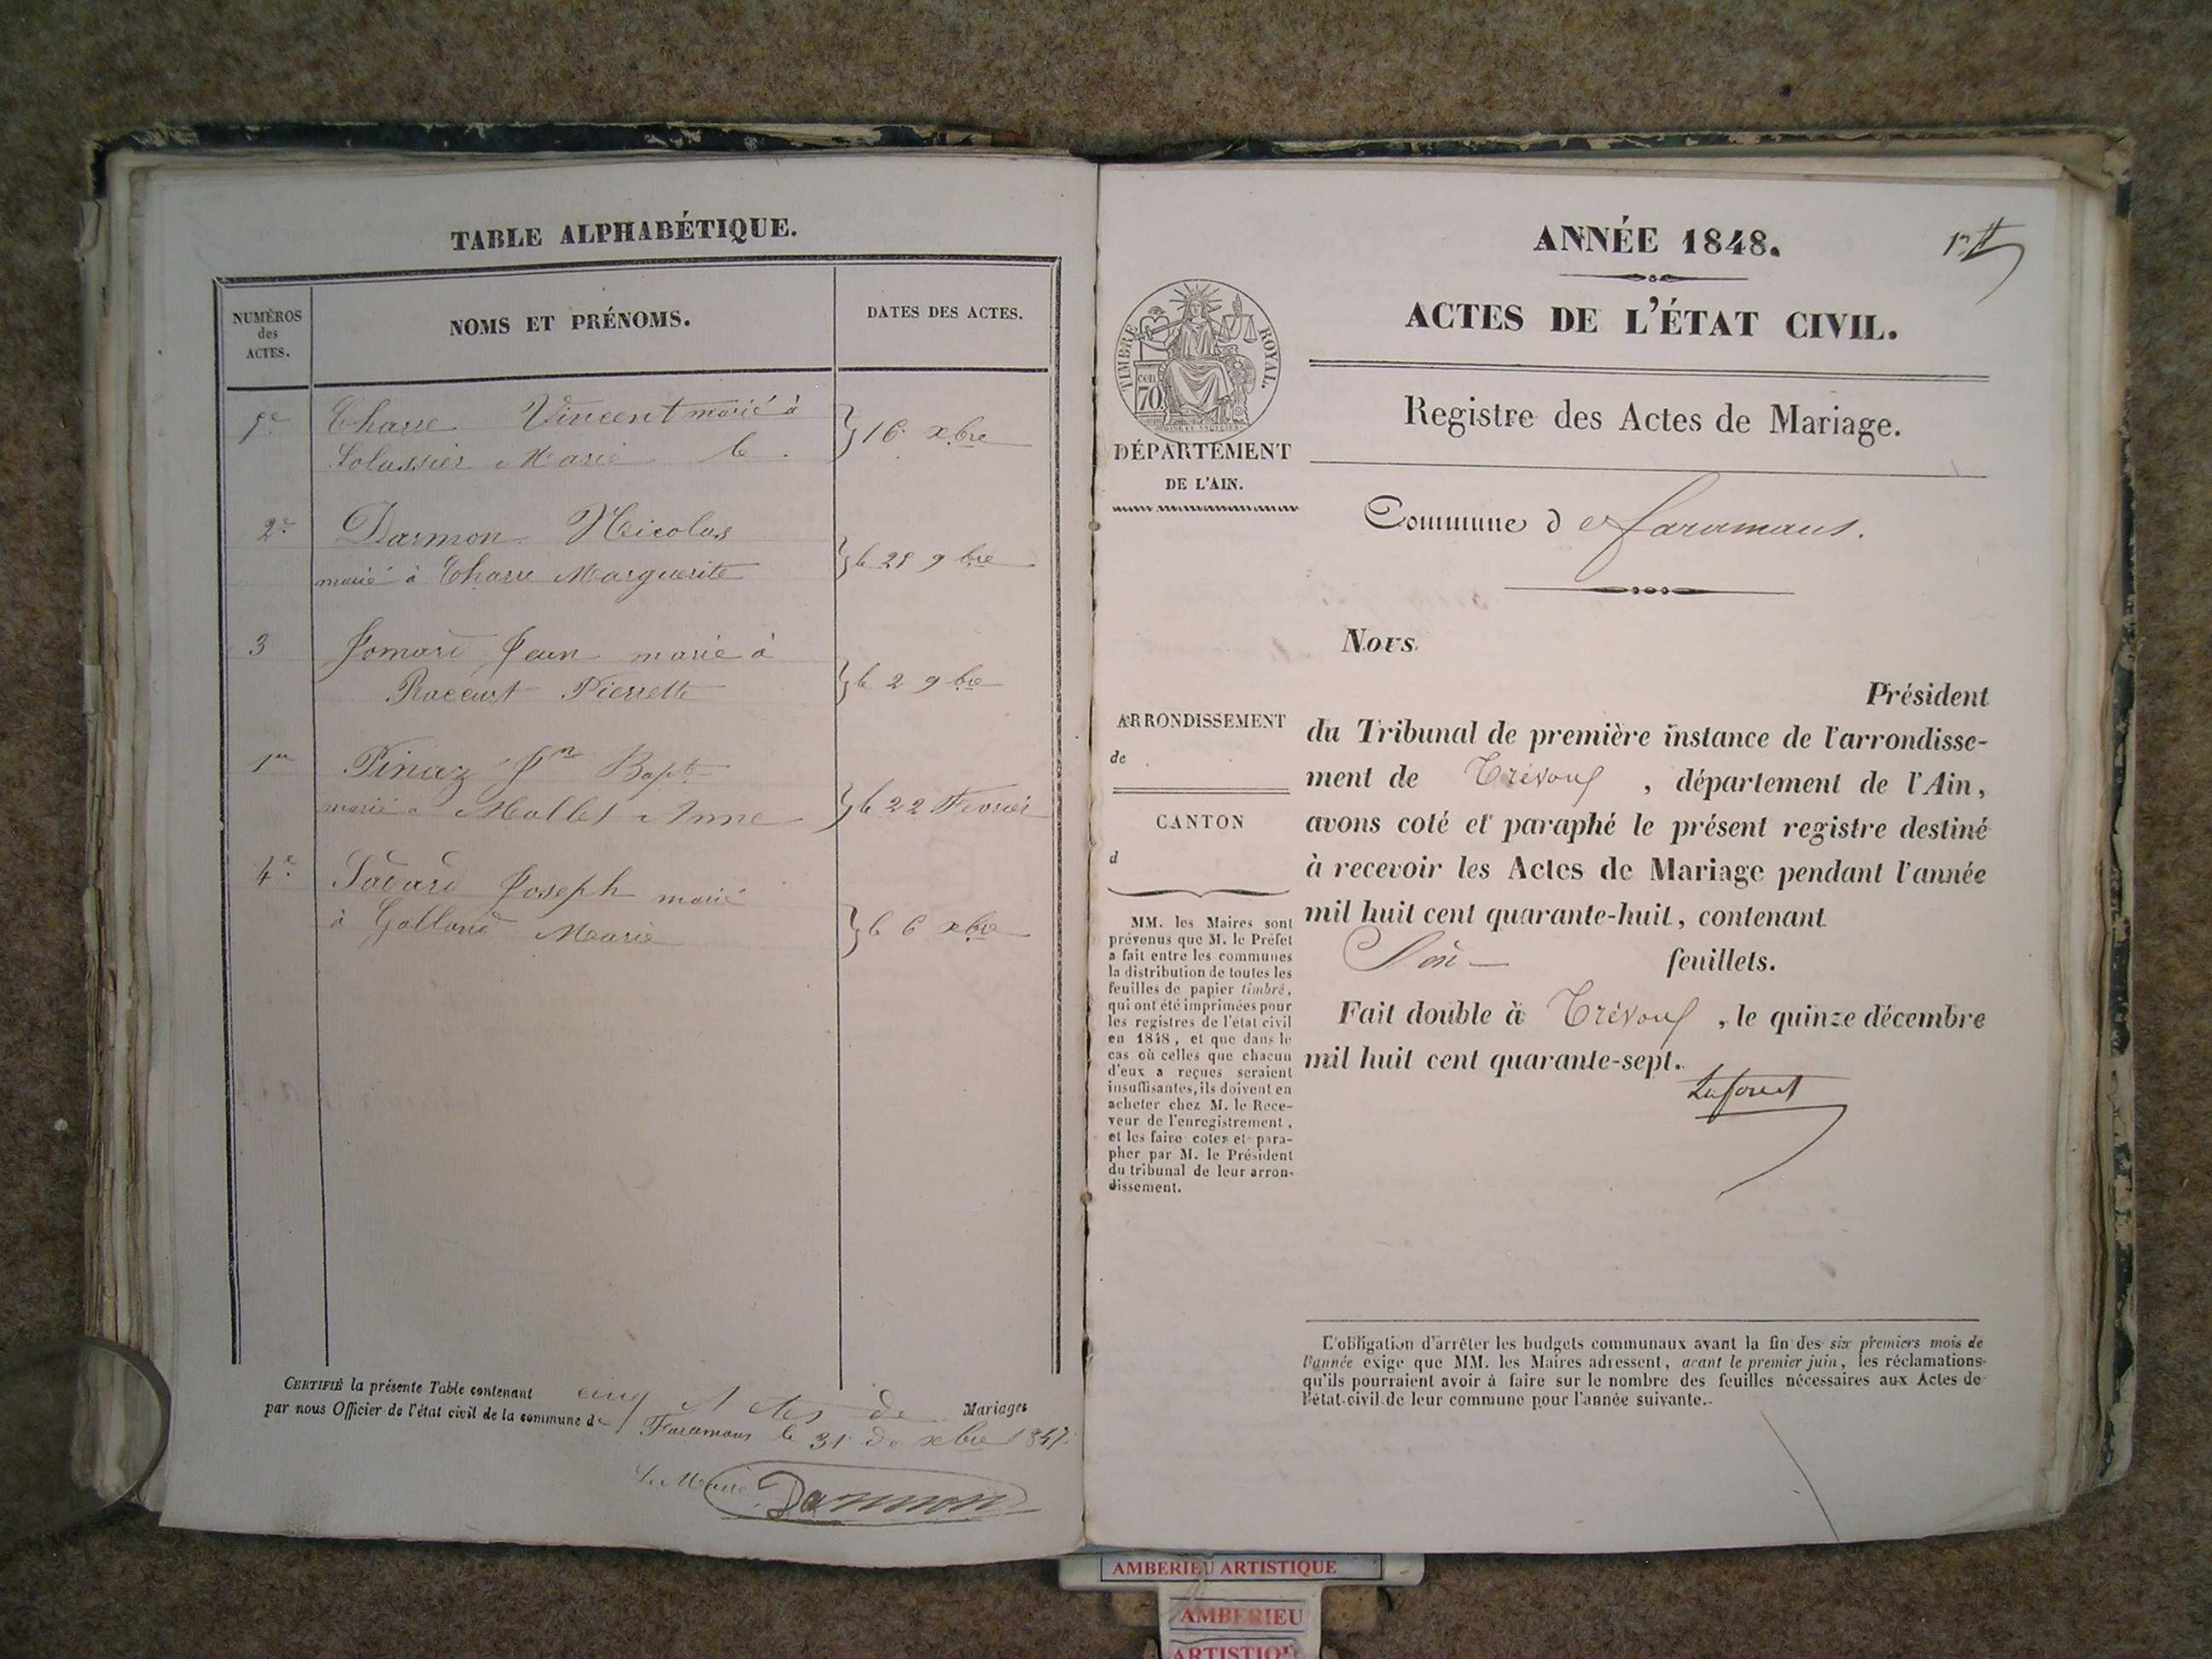 TABLE ALPHABÉTIQUE.
NUMÉROS
des
ACTES.
NOMS ET PRÉNOMS.
DATES DES ACTES.
Vincent marié à
Marie le
16 xbre
2e
Darmon Nicolas
marié à Marguerite
9bre
3
Jomard Jean marié à
Raccurt Pierrette
le 2 9bre
Pinaz Jn Bapt
marié à Mollet Anne
le 22 Fevrier
4e
Joseph marié
à Galland Marie
le 6 xbre
CERTIFIÉ la présente Table contenant cinq Actes de Mariages
par nous Officier de l'état civil de la commune de Faramans le 31 de xbre 1847.
Le Maire
Darmon
ANNÉE 1848.
ACTES DE L'ÉTAT CIVIL.
TIMBRE ROYAL.
cen
70
Registre des Actes de Mariage.
DÉPARTEMENT
DE L'AIN.
Commune de faramans.
Nous
Président
ARRONDISSEMENT
de
CANTON
d
du Tribunal de première instance de l'arrondisse-
ment de Trévoux, département de l'Ain,
avons coté et paraphé le présent registre destiné
à recevoir les Actes de Mariage pendant l'année
mil huit cent quarante-huit, contenant
feuillets.
Fait double à Trévoux, le quinze décembre
mil huit cent quarante-sept.
MM. les Maires sont
prévenus que M. le Préfet
a fait entre les communes
la distribution de toutes les
feuilles de papier timbré,
qui ont été imprimées pour
les registres de l'état civil
en 1848, et que dans le
cas où celles que chacun
d'eux a reçues seraient
insuffisantes, ils doivent en
acheter chez M. le Rece-
veur de l'enregistrement,
et les faire coter et para-
pher par M. le Président
du tribunal de leur arron-
dissement.
L'obligation d'arrêter les budgets communaux avant la fin des six premiers mois de
l'année exige que MM. les Maires adressent, avant le premier juin, les réclamations
qu'ils pourraient avoir à faire sur le nombre des feuilles nécessaires aux Actes de
l'état civil de leur commune pour l'année suivante.
AMBERIEU ARTISTIQUE
AMBERIEU
ARTISTIQUE